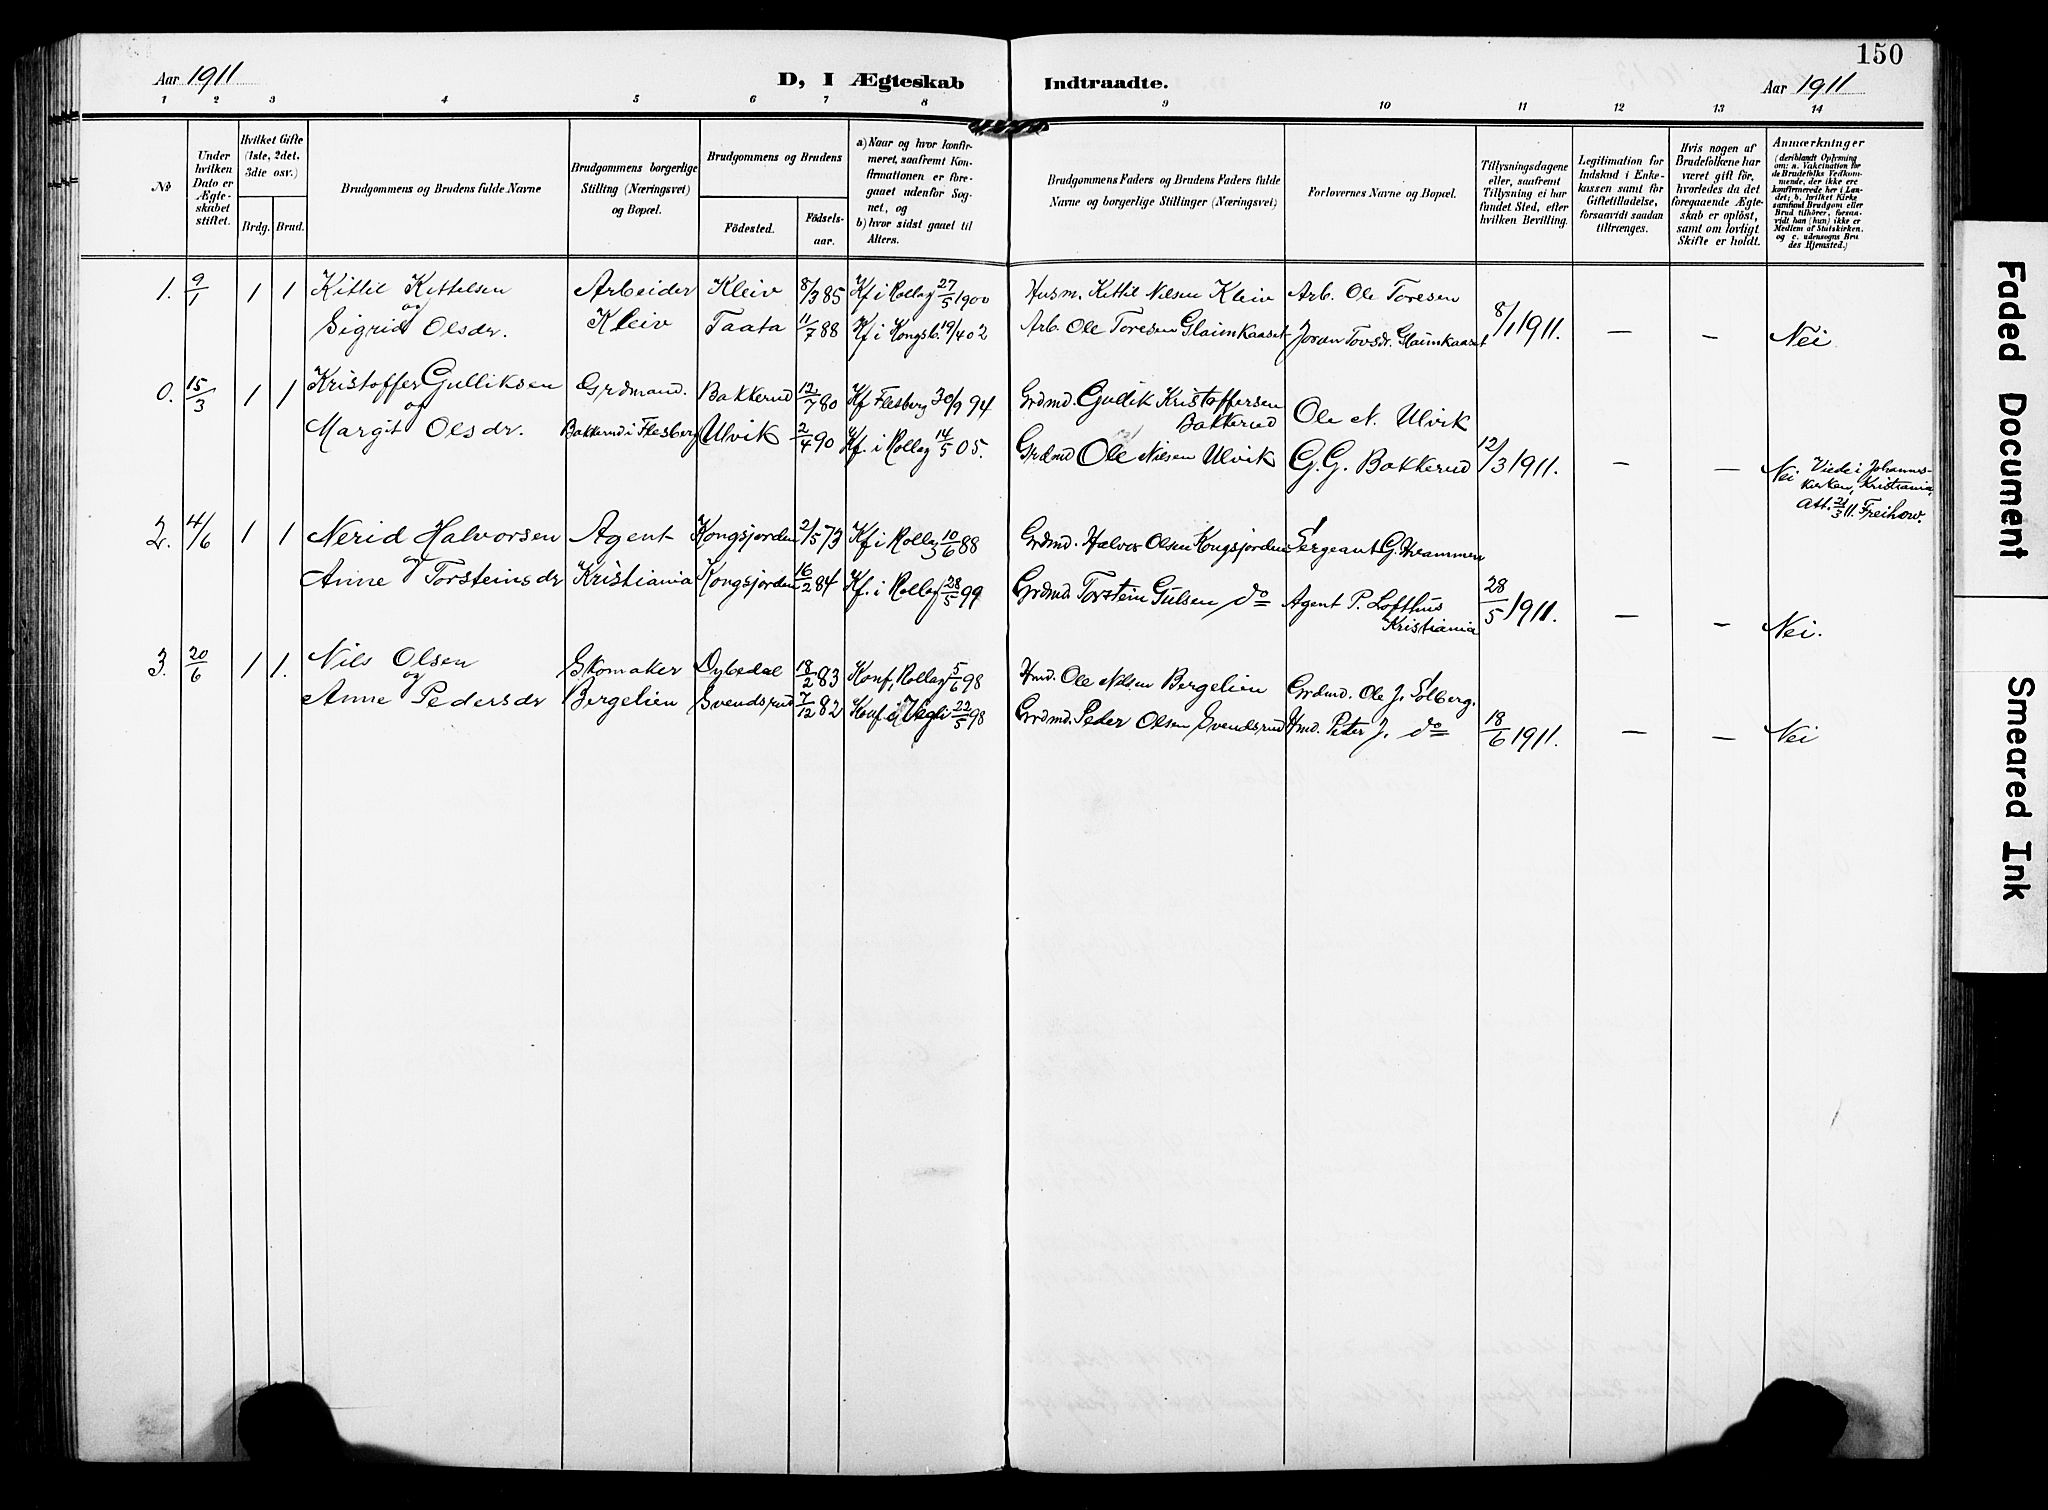 150
Aar 1911
D, I Ægteskab Indtraadte.
Aar 1911
1 2 3 4 5 6 7 8 9 10 11 12 13 14
No
Under hvilken Dato er Ægteskabet stiftet.
Hvilket Gifte (1ste, 2det, 3die osv.)
Brdg. Brud.
Brudgommens og Brudens fulde Navne
Brudgommens borgerlige Stilling (Næringsvei) og Bopæl.
Brudgommens og Brudens
Födested.
Födselsaar.
a) Naar og hvor konfirmeret, saafremt Konfirmationen er foregaaet udenfor Sognet, og
b) hvor sidst gaaet til Alters.
Brudgommens Faders og Brudens Faders fulde Navne og borgerlige Stillinger (Næringsvei)
Forlovernes Navne og Bopæl.
Tillysningsdagene eller, saafremt Tillysning ei har fundet Sted, efter hvilken Bevilling.
Legitimation for Indskud i Enkekassen samt for Giftetilladelse, forsaavidt saadan tiltrænges.
Hvis nogen af Brudefolkene har været gift för, hvorledes da det foregaaende Ægteskab er oplöst, samt om lovligt Skifte er holdt.
Anmærkninger
(deriblandt Oplysning om: a. Vakcination for de Brudefolks Vedkommende, der ikke ere konfirmerede her i Landet; b. hvilket Kirkesamfund Brudgom eller Brud tilhörer, forsaavidt han (hun) ikke er Medlem af Statskirken, og c. udensogns Brudes Hjemsted.)
1. 9/1 1 1 Kittil Kittelsen Arbeider Kleiv 8/3 85 Kf i Rollag 27/5 1900 Husm. Kittil Nilsen Kleiv Arb. Ole Toresen
og
Sigrid Olsdr. Kleiv Taata 11/7 88 Kf i Kongsb. 19/4 02 Arb. Ole Toresen Glaimkaaset Joran Tovsdr. Glaimkaaset 8/1 1911. — — Nei
0. 15/3 1 1 Kristoffer Gulliksen Grdmand. Bakkerud 12/7 80 Kf Flesberg 30/9 94 Grdmd. Gullik Kristoffersen Bakkerud Ole N. Ulvik
og
Margit Olsdr. Bakkerud i Flesberg Ulvik 2/4 90 Kf. i Rollag 14/5 05. Grdmd Ole Nilsen Ulvik G. G. Bakkerud 12/3 1911. — — Nei Viede i Johanneskirken, Kristiania, Att. 21/3 11. Freihow.
2. 4/6 1 1 Nerid Halvorsen Agent Kongsjorden 2/5 73 Kf i Rollag 10/6 88 Grdmd. Halvor Olsen Kongsjorden Sergeant G. Hvammen
og
Anne Torsteinsdr Kristiania Kongsjorden 16/2 84 Kf. i Rollag 28/5 99 Grdmd. Torstein Gulsen do Agent P. Lofthus Kristiania 28/5 1911. — — Nei.
3. 20/6 1 1. Nils Olsen Skomaker Dybedal 18/2 83 Konf, Rollag 5/6 98 Hmd. Ole Nilsen Bergelien Grdmd. Ole J. Solberg.
og
Anne Pedersdr Bergelien Svendsrud 7/12 82 Konf i Vegli 22/5 98 Grdmd. Peder Olsen Svendsrud Hmd. Peter J. do 18/6 1911. — — Nei
Faded Document
Smeared Ink